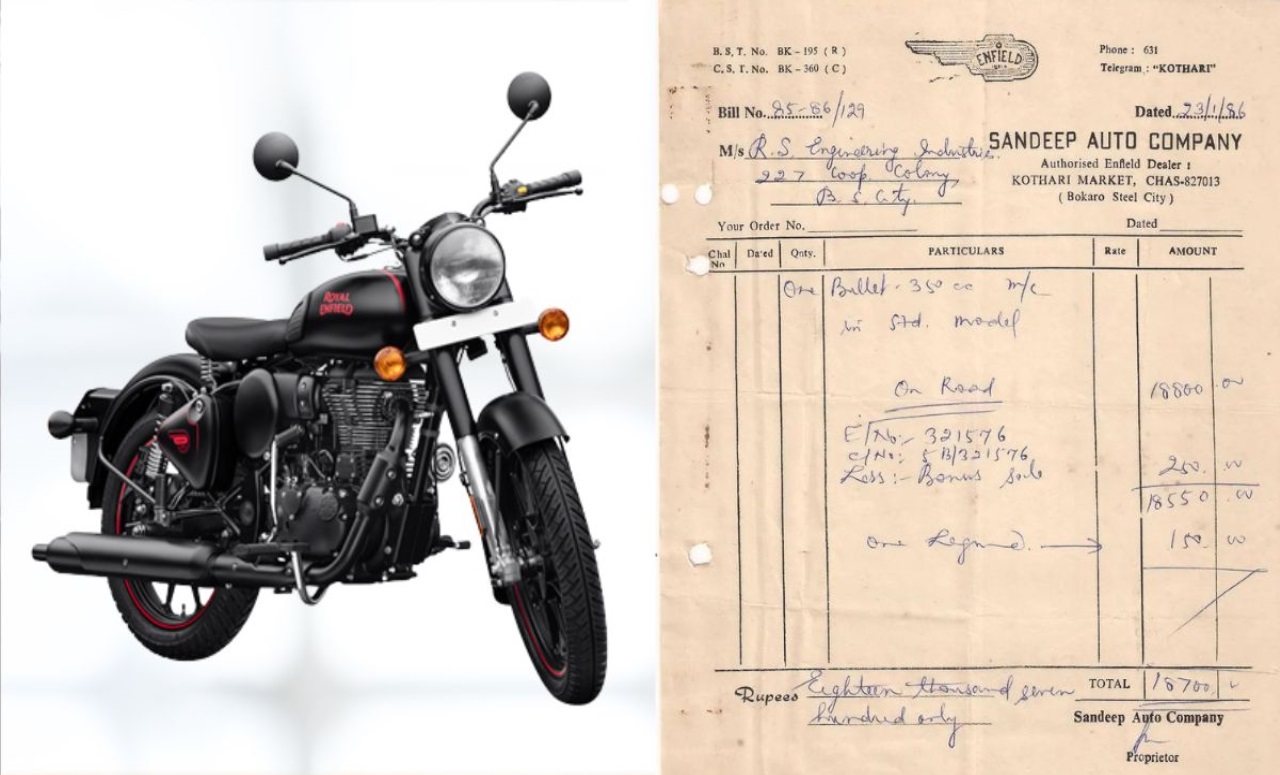 ROYAL
ENFIELD
B.S.T. No. BK-195 (R)
C.S.T. No. BK-360 (C)
ENFIELD
Phone : 631
Telegram : "KOTHARI"
Bill No. 85-86/129
Dated 23/1/86
M/s R.S. Engineering Industries.
227 Coop. Colony,
B. S. City.
SANDEEP AUTO COMPANY
Authorised Enfield Dealer :
KOTHARI MARKET, CHAS-827013
( Bokaro Steel City )
Your Order No.
Dated
Chal No Dated Qnty. PARTICULARS Rate AMOUNT
One Bullet - 350 cc m/c
in Std. model
On Road 18800.00
E/No:- 321576
C/No:- 5B/321576
Less:- Bonus 250.00
18550.00
One 150.00
Rupees Eighteen thousand seven
hundred only
TOTAL 18700
Sandeep Auto Company
Proprietor